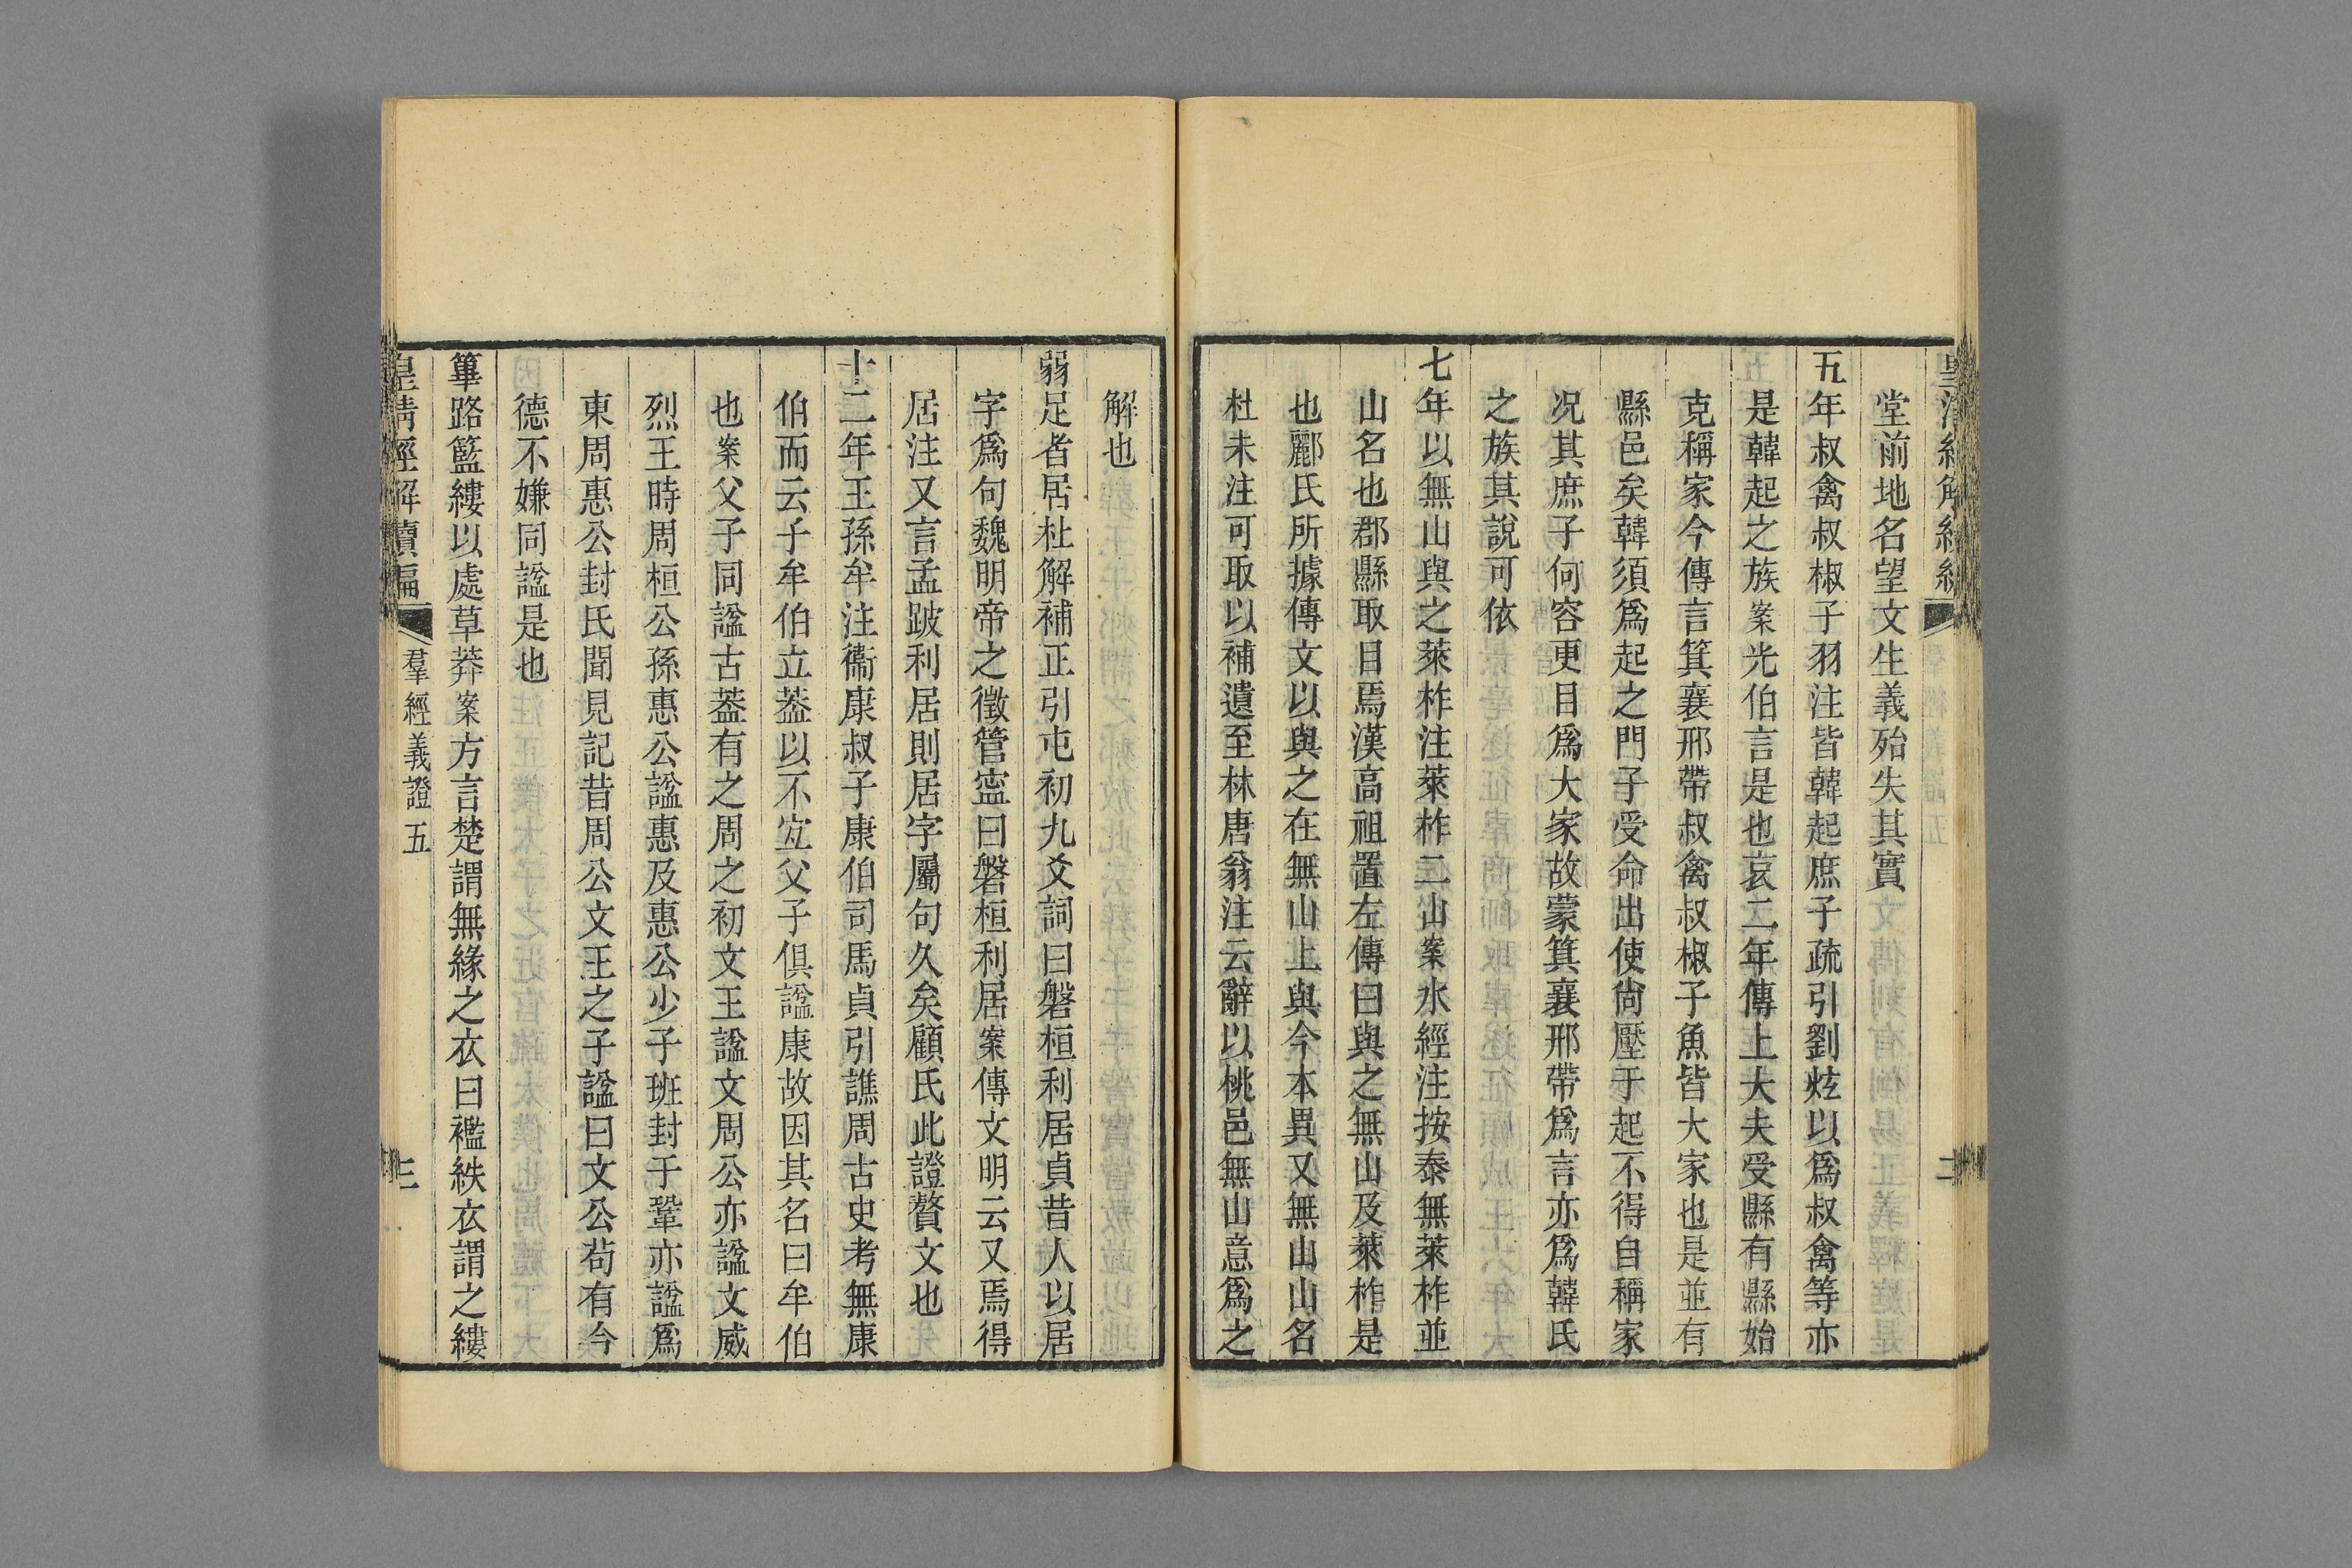 堂前地名望文生義殆失其實
五年叔禽叔椒子羽注皆韓起庶子疏引劉炫以爲叔禽等亦
是韓起之族案光伯言是也哀二年傳上大夫受縣有縣始
克稱家今傳言箕襄邢帶叔禽叔椒子魚皆大家也是並有
縣邑矣韓須爲起之門子受命出使尙壓于起不得自稱家
况其庶子何容更目爲大家故蒙箕襄邢帶爲言亦爲韓氏
之族其說可依
七年以無山與之萊柞注萊柞二山案水經注按泰無萊柞並
山名也郡縣取目焉漢高祖置左傳曰與之無山及萊柞是
也酈氏所據傳文以與之在無山上與今本異又無山山名
杜未注可取以補遺至林唐翁注云辭以桃邑無山意爲之
解也
弱足者居杜解補正引屯初九爻詞曰磐桓利居貞昔人以居
字爲句魏明帝之徵管寍曰磐桓利居案傳文明云又焉得
居注又言孟跛利居則居字屬句久矣顧氏此證贅文也
十二年王孫牟注衞康叔子康伯司馬貞引譙周古史考無康
伯而云子牟伯立葢以不宐父子俱諡康故因其名曰牟伯
也案父子同諡古葢有之周之初文王諡文周公亦諡文威
烈王時周桓公孫惠公諡惠及惠公少子班封于鞏亦諡爲
東周惠公封氏聞見記昔周公文王之子諡曰文公苟有今
德不嫌同諡是也
篳路籃縷以處草莽案方言楚謂無緣之衣曰襤紩衣謂之縷
皇淸經解續編 羣經義證五 三